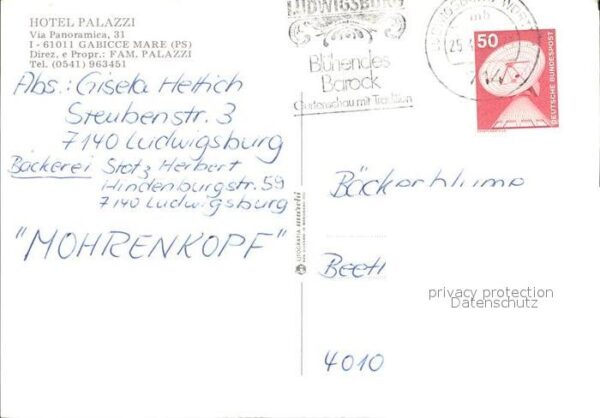 HOTEL PALAZZI
Via Panoramica, 31
I - 61011 GABICCE MARE (PS)
Direz. e Propr.: FAM. PALAZZI
Tel. (0541) 963451
Abs.: Gisela Hettich
Steubenstr. 3
7140 Ludwigsburg
Bäckerei Stotz Herbert
Hindenburgstr. 59
7140 Ludwigsburg
"MOHRENKOPF"
LUDWIGSBURG
Blühendes
Barock
Gartenschau mit Tradition
714
50
DEUTSCHE BUNDESPOST
Bäckerblume
privacy protection
Datenschutz
4010